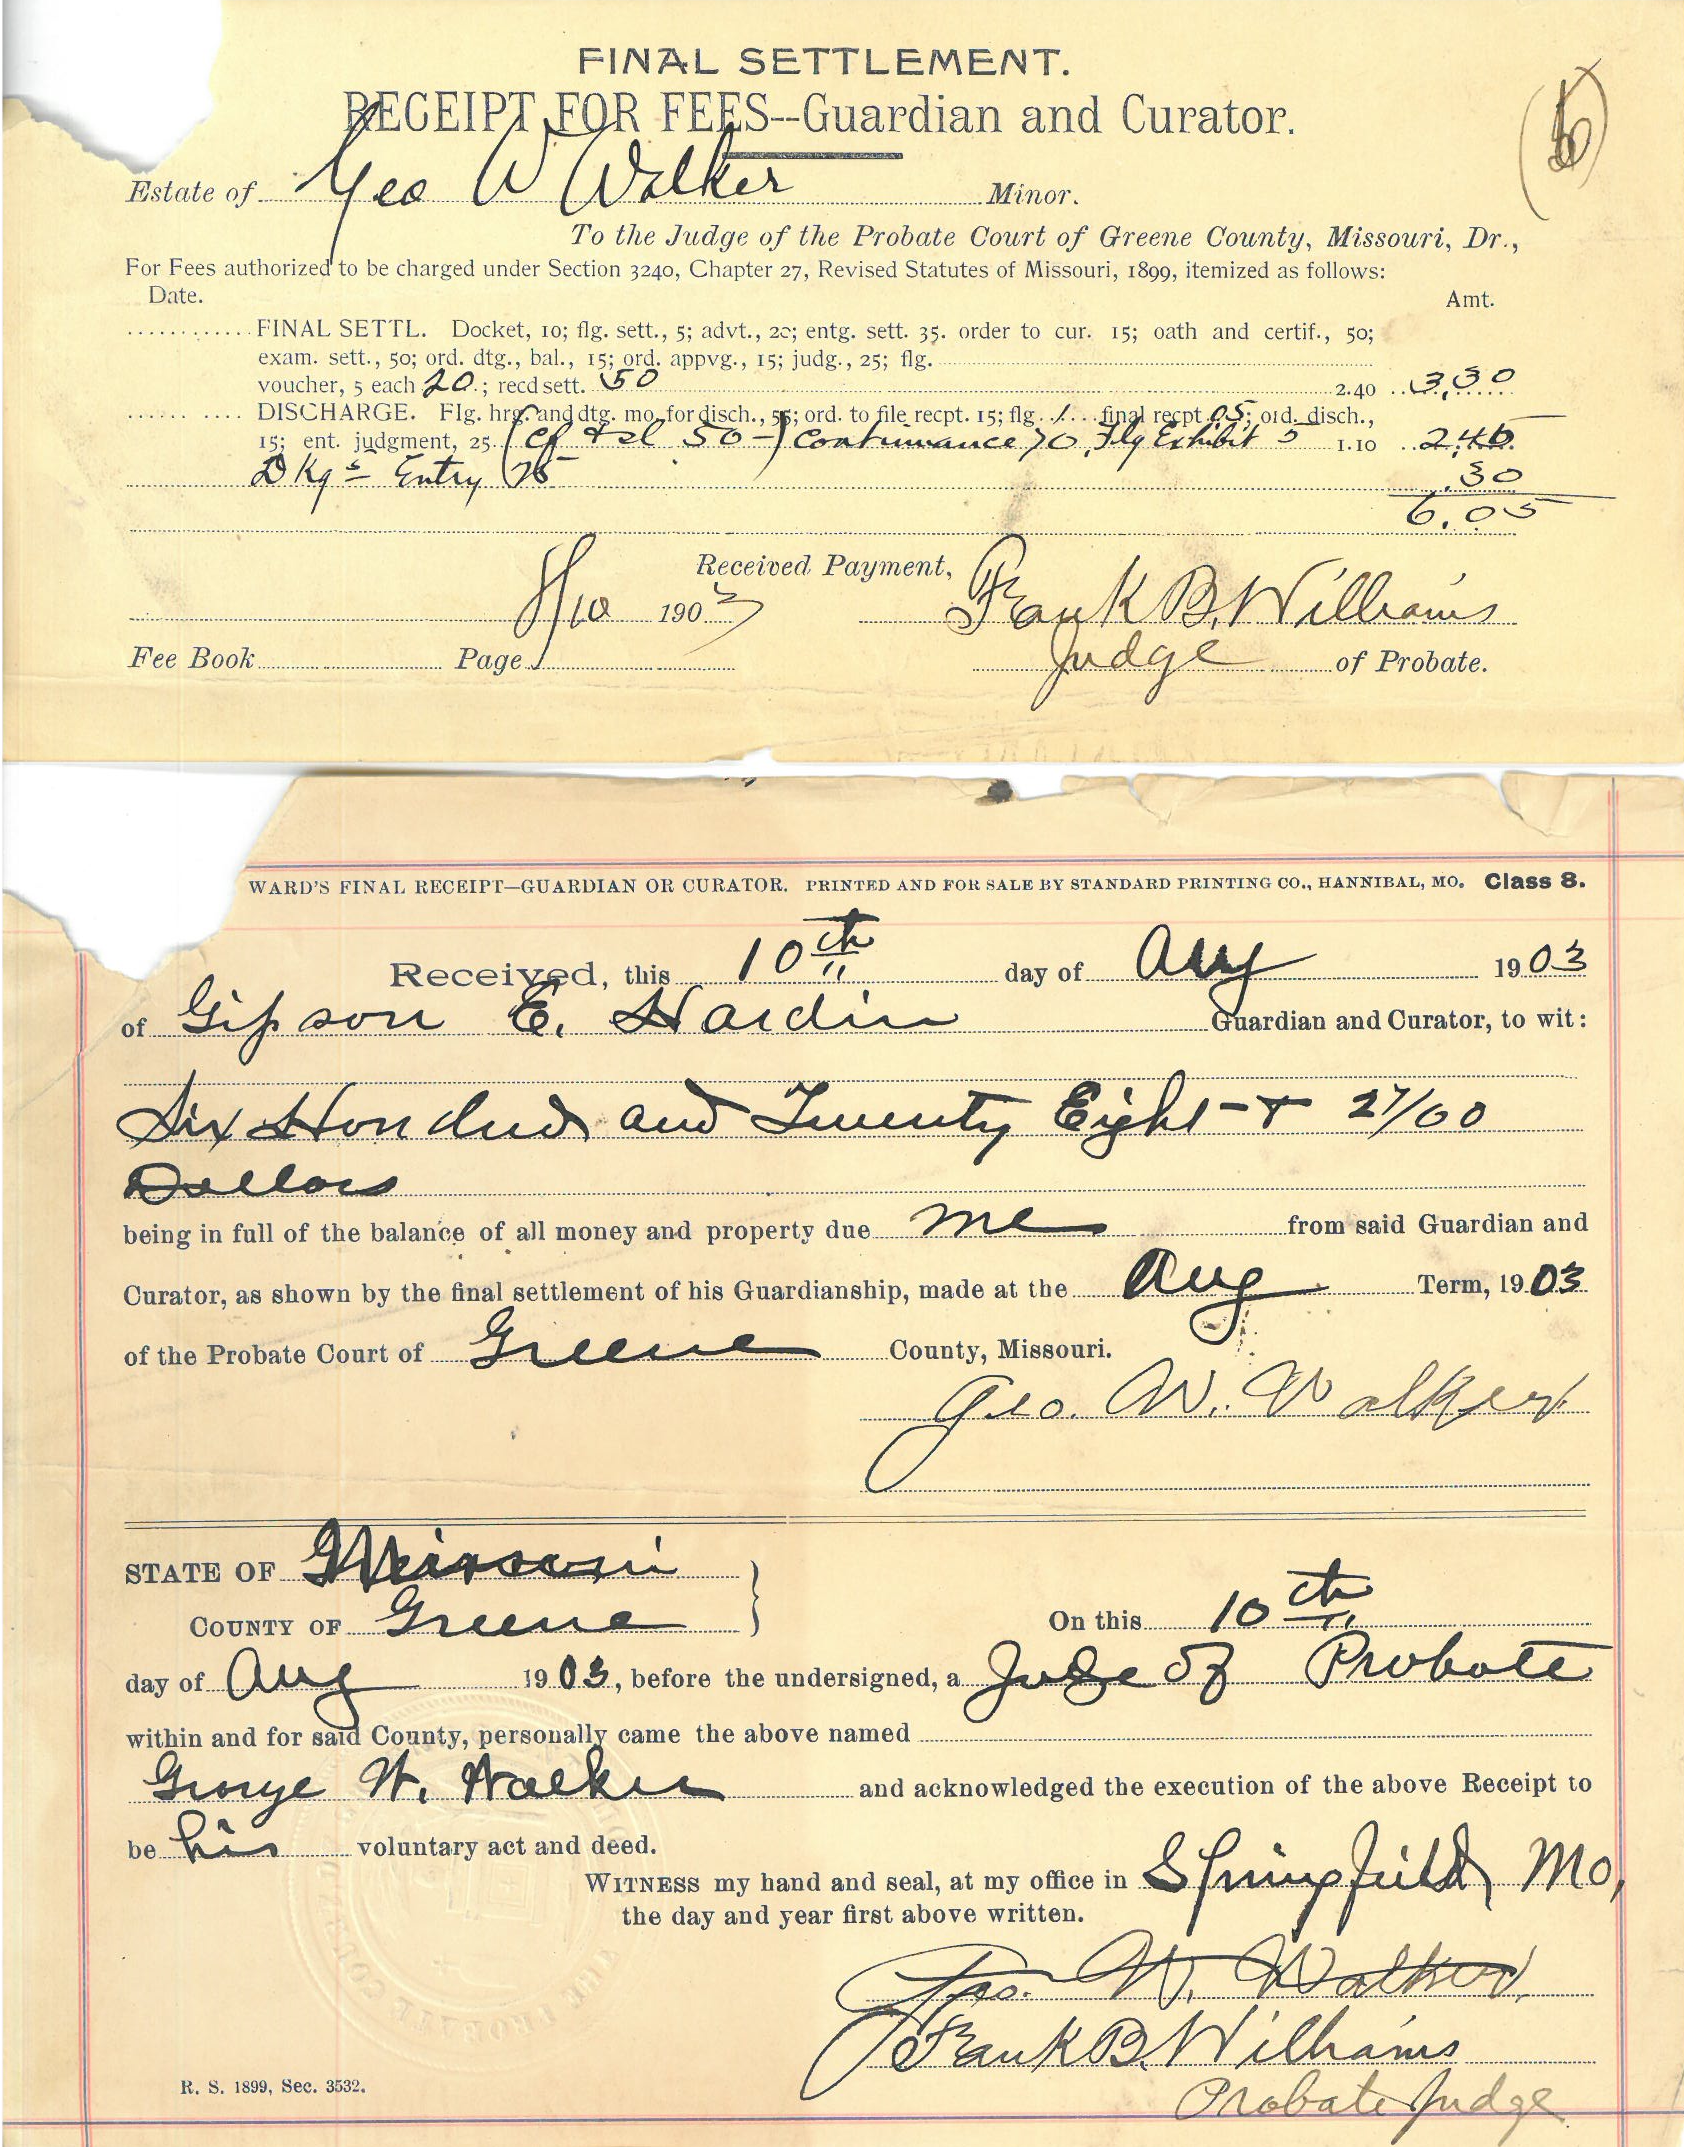 FINAL SETTLEMENT.
RECEIPT FOR FEES--Guardian and Curator.
Estate of Geo W Walker Minor.
To the Judge of the Probate Court of Greene County, Missouri, Dr.,
For Fees authorized to be charged under Section 3240, Chapter 27, Revised Statutes of Missouri, 1899, itemized as follows:
Date. Amt.
FINAL SETTL. Docket, 10; flg. sett., 5; advt., 20; entg. sett. 35. order to cur. 15; oath and certif., 50;
exam. sett., 50; ord. dtg., bal., 15; ord. appvg., 15; judg., 25; flg.
voucher, 5 each 20; recd sett. 50 2.40 3.30
DISCHARGE. Flg. hrg. and dtg. mo. for disch., 55; ord. to file recpt. 15; flg. 1 final recpt 05; ord. disch.,
15; ent. judgment, 25 (Cf & sl 50-) Continuance 70, Flg Exhibit 5 1.10 2.45
Dkg Entry .30
6.05
Received Payment, Frank B. Williams
8/10 1903
Fee Book Page Judge of Probate.
WARD'S FINAL RECEIPT—GUARDIAN OR CURATOR. PRINTED AND FOR SALE BY STANDARD PRINTING CO., HANNIBAL, MO. Class 8.
Received, this 10th day of Aug 1903
of Gipson E. Hardin Guardian and Curator, to wit:
Six Hondred and Twenty Eight + 27/00
Dollars
being in full of the balance of all money and property due me from said Guardian and
Curator, as shown by the final settlement of his Guardianship, made at the Aug Term, 1903
of the Probate Court of Greene County, Missouri.
Geo. W. Walker
STATE OF Missouri }
COUNTY OF Greene On this 10th
day of Aug 1903, before the undersigned, a Judge of Probate
within and for said County, personally came the above named
George W. Walker and acknowledged the execution of the above Receipt to
be his voluntary act and deed.
WITNESS my hand and seal, at my office in Springfield, Mo,
the day and year first above written.
Geo. W. Walker.
Frank B. Williams
Probate Judge
R. S. 1899, Sec. 3532.